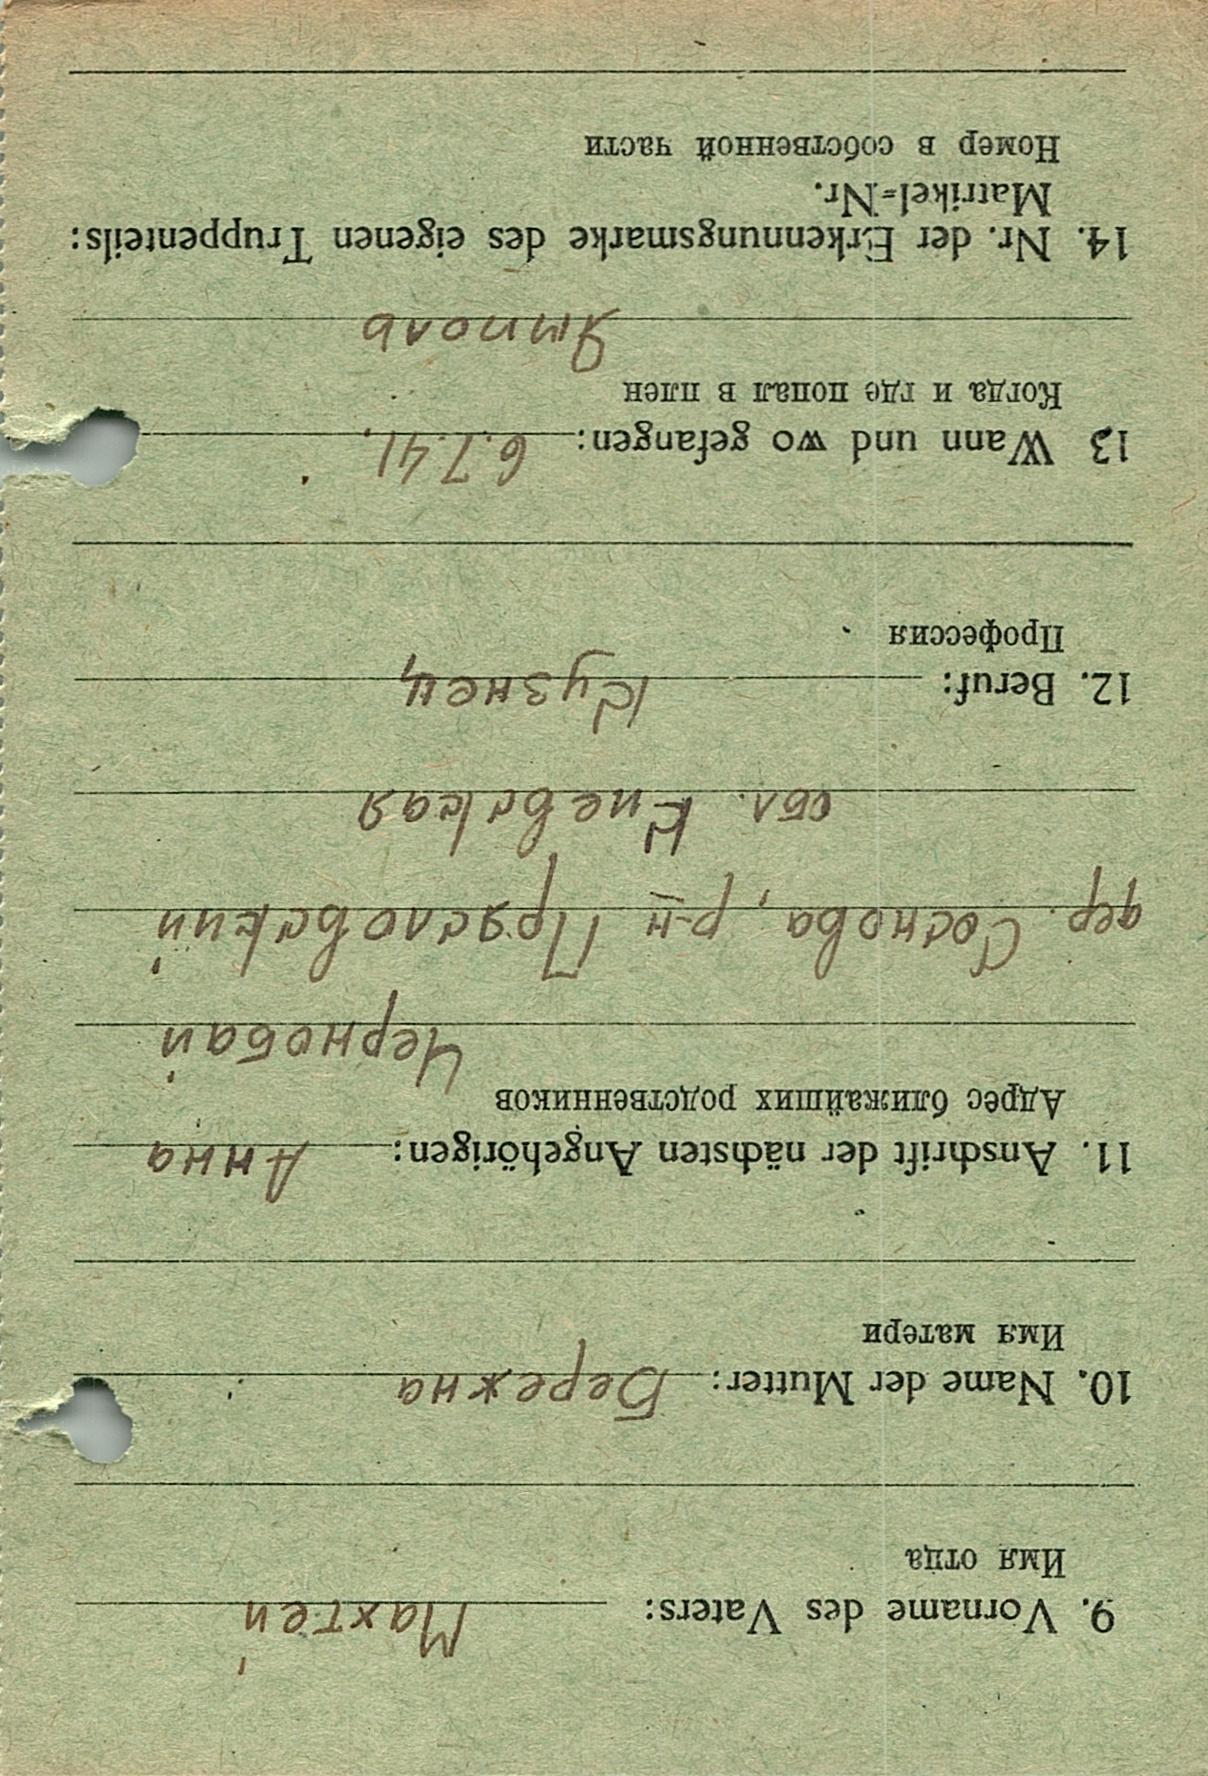 9. Vorname des Vaters: Махтей
Имя отца
10. Name der Mutter: Бережна
Имя матери
11. Anschrift der nächsten Angehörigen: Анна
Адрес ближайших родственников
Чернобай
дер. Соснова, р-н Прясловский
обл. Киевская
12. Beruf: Кузнец
Профессия
13 Wann und wo gefangen: 6.7.41.
Когда и где попал в плен
Ямполь
14. Nr. der Erkennungsmarke des eigenen Truppenteils:
Matrikel=Nr.
Номер в собственной части